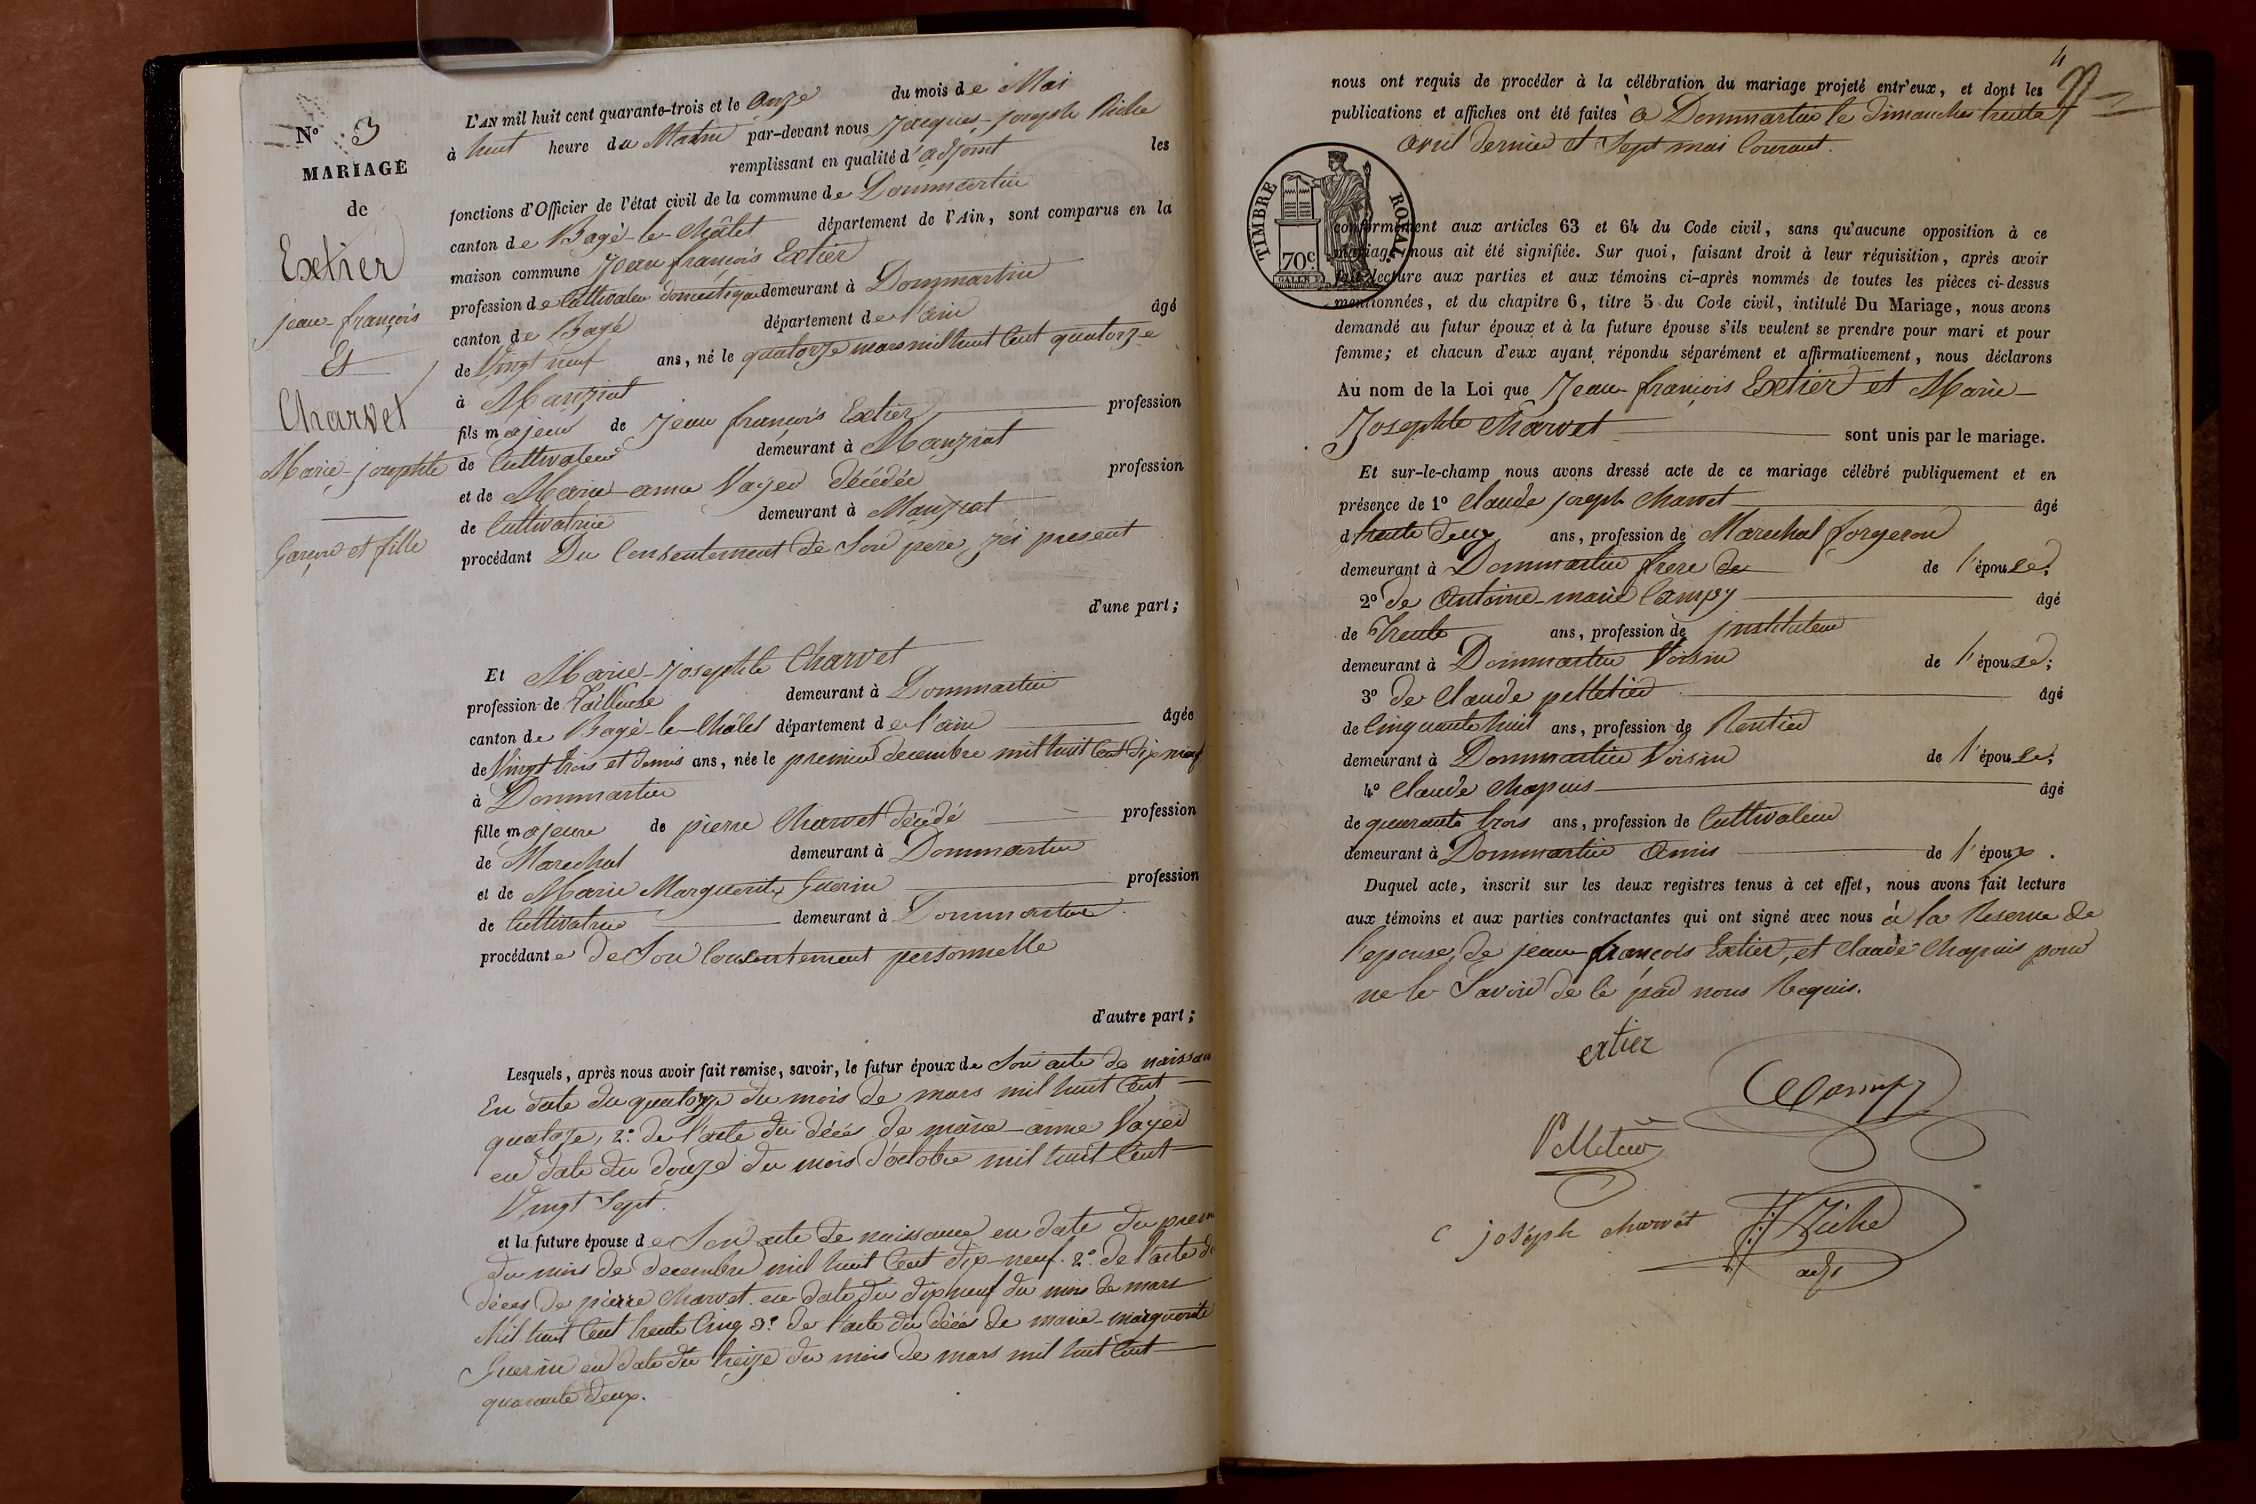 N° 3
MARIAGE
de
Extier
jean-françois
Et
Charvet
Marie-josephte
Garçon et fille
L'AN mil huit cent quarante-trois et le onze du mois de Mai
à huit heure du Matin par-devant nous Jacques-joseph Riche
remplissant en qualité d'adjoint les
fonctions d'Officier de l'état civil de la commune de Dommartin
canton de Bagé-le-Châtel département de l'Ain, sont comparus en la
maison commune Jean françois Extier
profession de Cultivateur domestique demeurant à Dommartin
canton de Bagé département de l'ain âgé
de Vingt neuf ans, né le quatorze mars mil huit Cent quatorze
à Manziat
fils majeur de Jean françois Extier profession
de Cultivateur demeurant à Manziat
et de Marie-anne Vayer décédée profession
de Cultivatrice demeurant à Manziat
procédant Du Consentement de Son pere, ici present
d'une part;
Et Marie-Josephte Charvet
profession de Tailleuse demeurant à Dommartin
canton de Bagé-le-Châtel département de l'ain âgée
de Vingt trois et demis ans, née le premier decembre mil huit Cent dix neuf
à Dommartin
fille majeure de pierre Charvet décédé profession
de Marechal demeurant à Dommartin
et de Marie Marguerite Guerin profession
de Cultivatrice demeurant à Dommartin
procédante de Son Consentement personnelle
d'autre part;
Lesquels, après nous avoir fait remise, savoir, le futur époux de Son acte de naissan
En date du quatorze du mois de mars mil huit Cent
quatoze, 2.° de l'acte du décés de marie-anne Vayer
en date du douze du mois d'octobre mil huit Cent
Vingt Sept.
et la future épouse de Son acte de naissance en date du prem
du mois de decembre mil huit Cent dix-neuf. 2.° de l'acte de
décés de pierre Charvet en date du dix neuf du mois de mars
Mil huit Cent trente Cinq 3.° de l'acte du décés de marie-marguerite
Guerin en date du treize du mois de mars mil huit Cent
quarante deux.
4
nous ont requis de procéder à la célébration du mariage projeté entr'eux, et dont les
publications et affiches ont été faites à Dommartin le Dimanche trente
avril dernier et Sept mai Courant.
TIMBRE ROYAL
70c
conformément aux articles 63 et 64 du Code civil, sans qu'aucune opposition à ce
mariage nous ait été signifiée. Sur quoi, faisant droit à leur réquisition, après avoir
fait lecture aux parties et aux témoins ci-après nommés de toutes les pièces ci-dessus
mentionnées, et du chapitre 6, titre 5 du Code civil, intitulé Du Mariage, nous avons
demandé au futur époux et à la future épouse s'ils veulent se prendre pour mari et pour
femme; et chacun d'eux ayant répondu séparément et affirmativement, nous déclarons
Au nom de la Loi que Jean-françois Extier et Marie-
Josephte Charvet sont unis par le mariage.
Et sur-le-champ nous avons dressé acte de ce mariage célébré publiquement et en
présence de 1° Claude joseph Charvet âgé
d trente deux ans, profession de Marechal forgeron
demeurant à Dommartin frere de de l'épouse;
2° de Antoine-marie Campy âgé
de trente ans, profession de jnstituteur
demeurant à Dommartin Voisin de l'épouse;
3° de Claude pelletier âgé
de Cinquante huit ans, profession de Rentier
demeurant à Dommartin Voisin de l'épouse;
4° Claude Chapuis âgé
de quarante trois ans, profession de Cultivateur
demeurant à Dommartin Amis de l'époux.
Duquel acte, inscrit sur les deux registres tenus à cet effet, nous avons fait lecture
aux témoins et aux parties contractantes qui ont signé avec nous à la Reserve de
l'epouse, de jean-françois Extier, et Claude Chapuis pour
ne le Savoir de ce par nous Requis.
extier
Campy
Pelletier
c joséph charvét
JJ Riche
adj